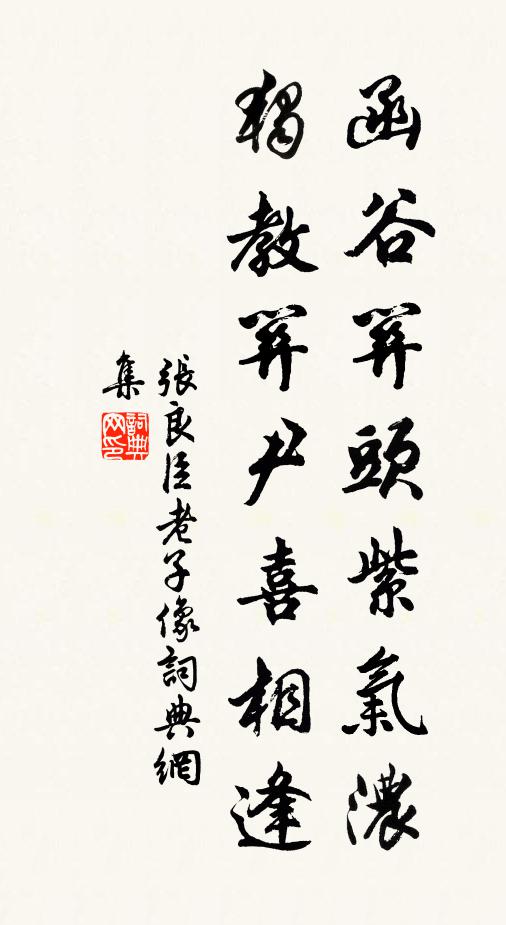 函谷關頭紫氣濃
獨教關尹喜相逢
張良臣老子像詞典網
集
詞典網印